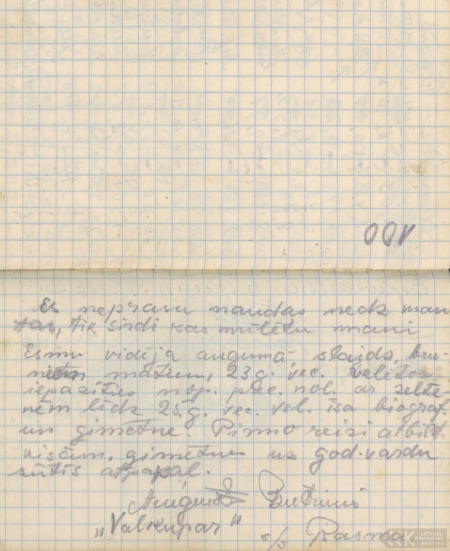 001
Es neprasu naudas nedz man
tas, tik sirdi kas mīlētu mani
Esmu vidēja augumā slaids, brū-
matiem, 23 g. vec. vēlētos
iepazīties noj. prec. nol. ar zelte
nēm līdz 25 g. vec. vēl. īsa biograf.
un ģīmetne. Pirmo reizi atbild.
visām, ģīmetnes uz god. vārdu
sūtīs atpakaļ.
Augusts
"Valkupar"
c/s Rasma